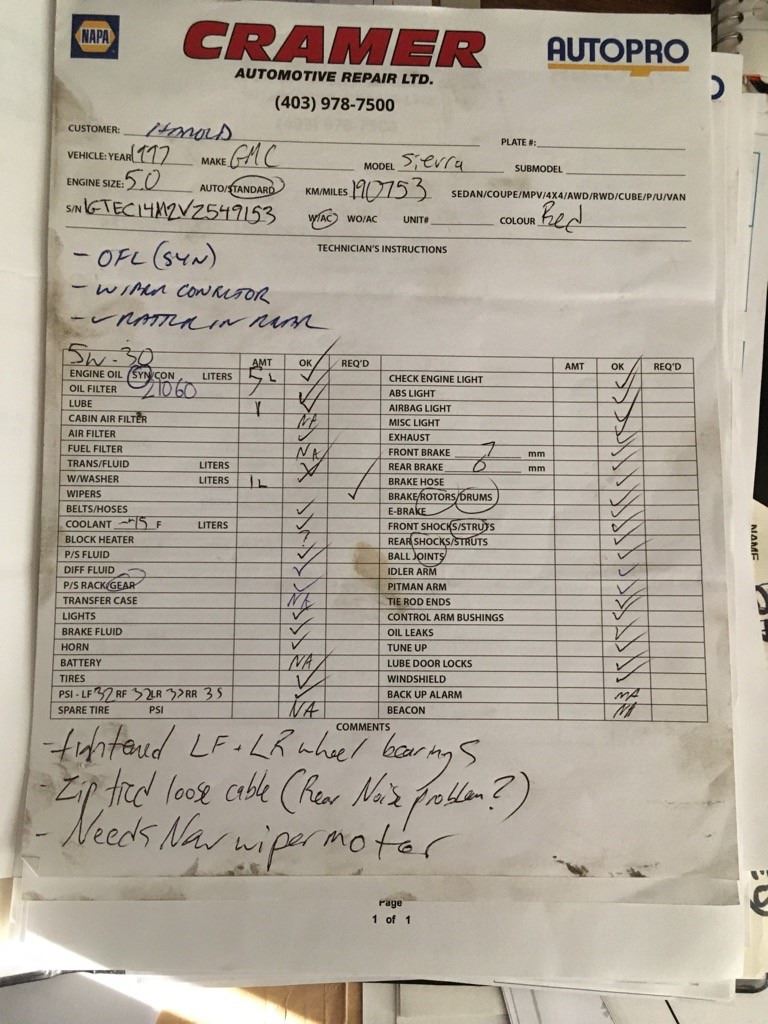 NAPA
CRAMER
AUTOMOTIVE REPAIR LTD.
(403) 978-7500
AUTOPRO
CUSTOMER: HAROLD PLATE #:
VEHICLE: YEAR 1997 MAKE GMC MODEL Sierra SUBMODEL
ENGINE SIZE: 5.0 AUTO/STANDARD KM/MILES 190753 SEDAN/COUPE/MPV/4X4/AWD/RWD/CUBE/P/U/VAN
S/N 1GTEC14M2VZ549153 W/AC WO/AC UNIT# COLOUR Red
TECHNICIAN'S INSTRUCTIONS
- OFL (SYN)
- WIPER
- RATTLE IN REAR
5W-30 AMT OK REQ'D
ENGINE OIL SYN/CON LITERS 5L ✓
OIL FILTER 21060 ✓
LUBE Y ✓
CABIN AIR FILTER NA
AIR FILTER ✓
FUEL FILTER NA
TRANS/FLUID LITERS
W/WASHER LITERS 1L ✓
WIPERS ✓
BELTS/HOSES ✓
COOLANT -45 F LITERS ✓
BLOCK HEATER ?
P/S FLUID ✓
DIFF FLUID ✓
P/S RACK/GEAR ✓
TRANSFER CASE NA
LIGHTS ✓
BRAKE FLUID ✓
HORN ✓
BATTERY NA
TIRES ✓
PSI - LF 32 RF 32 LR 35 RR 35 ✓
SPARE TIRE PSI NA
AMT OK REQ'D
CHECK ENGINE LIGHT ✓
ABS LIGHT ✓
AIRBAG LIGHT ✓
MISC LIGHT ✓
EXHAUST ✓
FRONT BRAKE 7 mm ✓
REAR BRAKE 6 mm ✓
BRAKE HOSE ✓
BRAKE/ROTORS/DRUMS ✓
E-BRAKE ✓
FRONT SHOCKS/STRUTS ✓
REAR SHOCKS/STRUTS ✓
BALL JOINTS ✓
IDLER ARM ✓
PITMAN ARM ✓
TIE ROD ENDS ✓
CONTROL ARM BUSHINGS ✓
OIL LEAKS ✓
TUNE UP ✓
LUBE DOOR LOCKS ✓
WINDSHIELD ✓
BACK UP ALARM NA
BEACON NA
COMMENTS
- tightened LF + LR wheel bearings
- Zip tied loose cable (Rear Noise problem?)
- Needs New wiper motor
Page
1 of 1
NAME